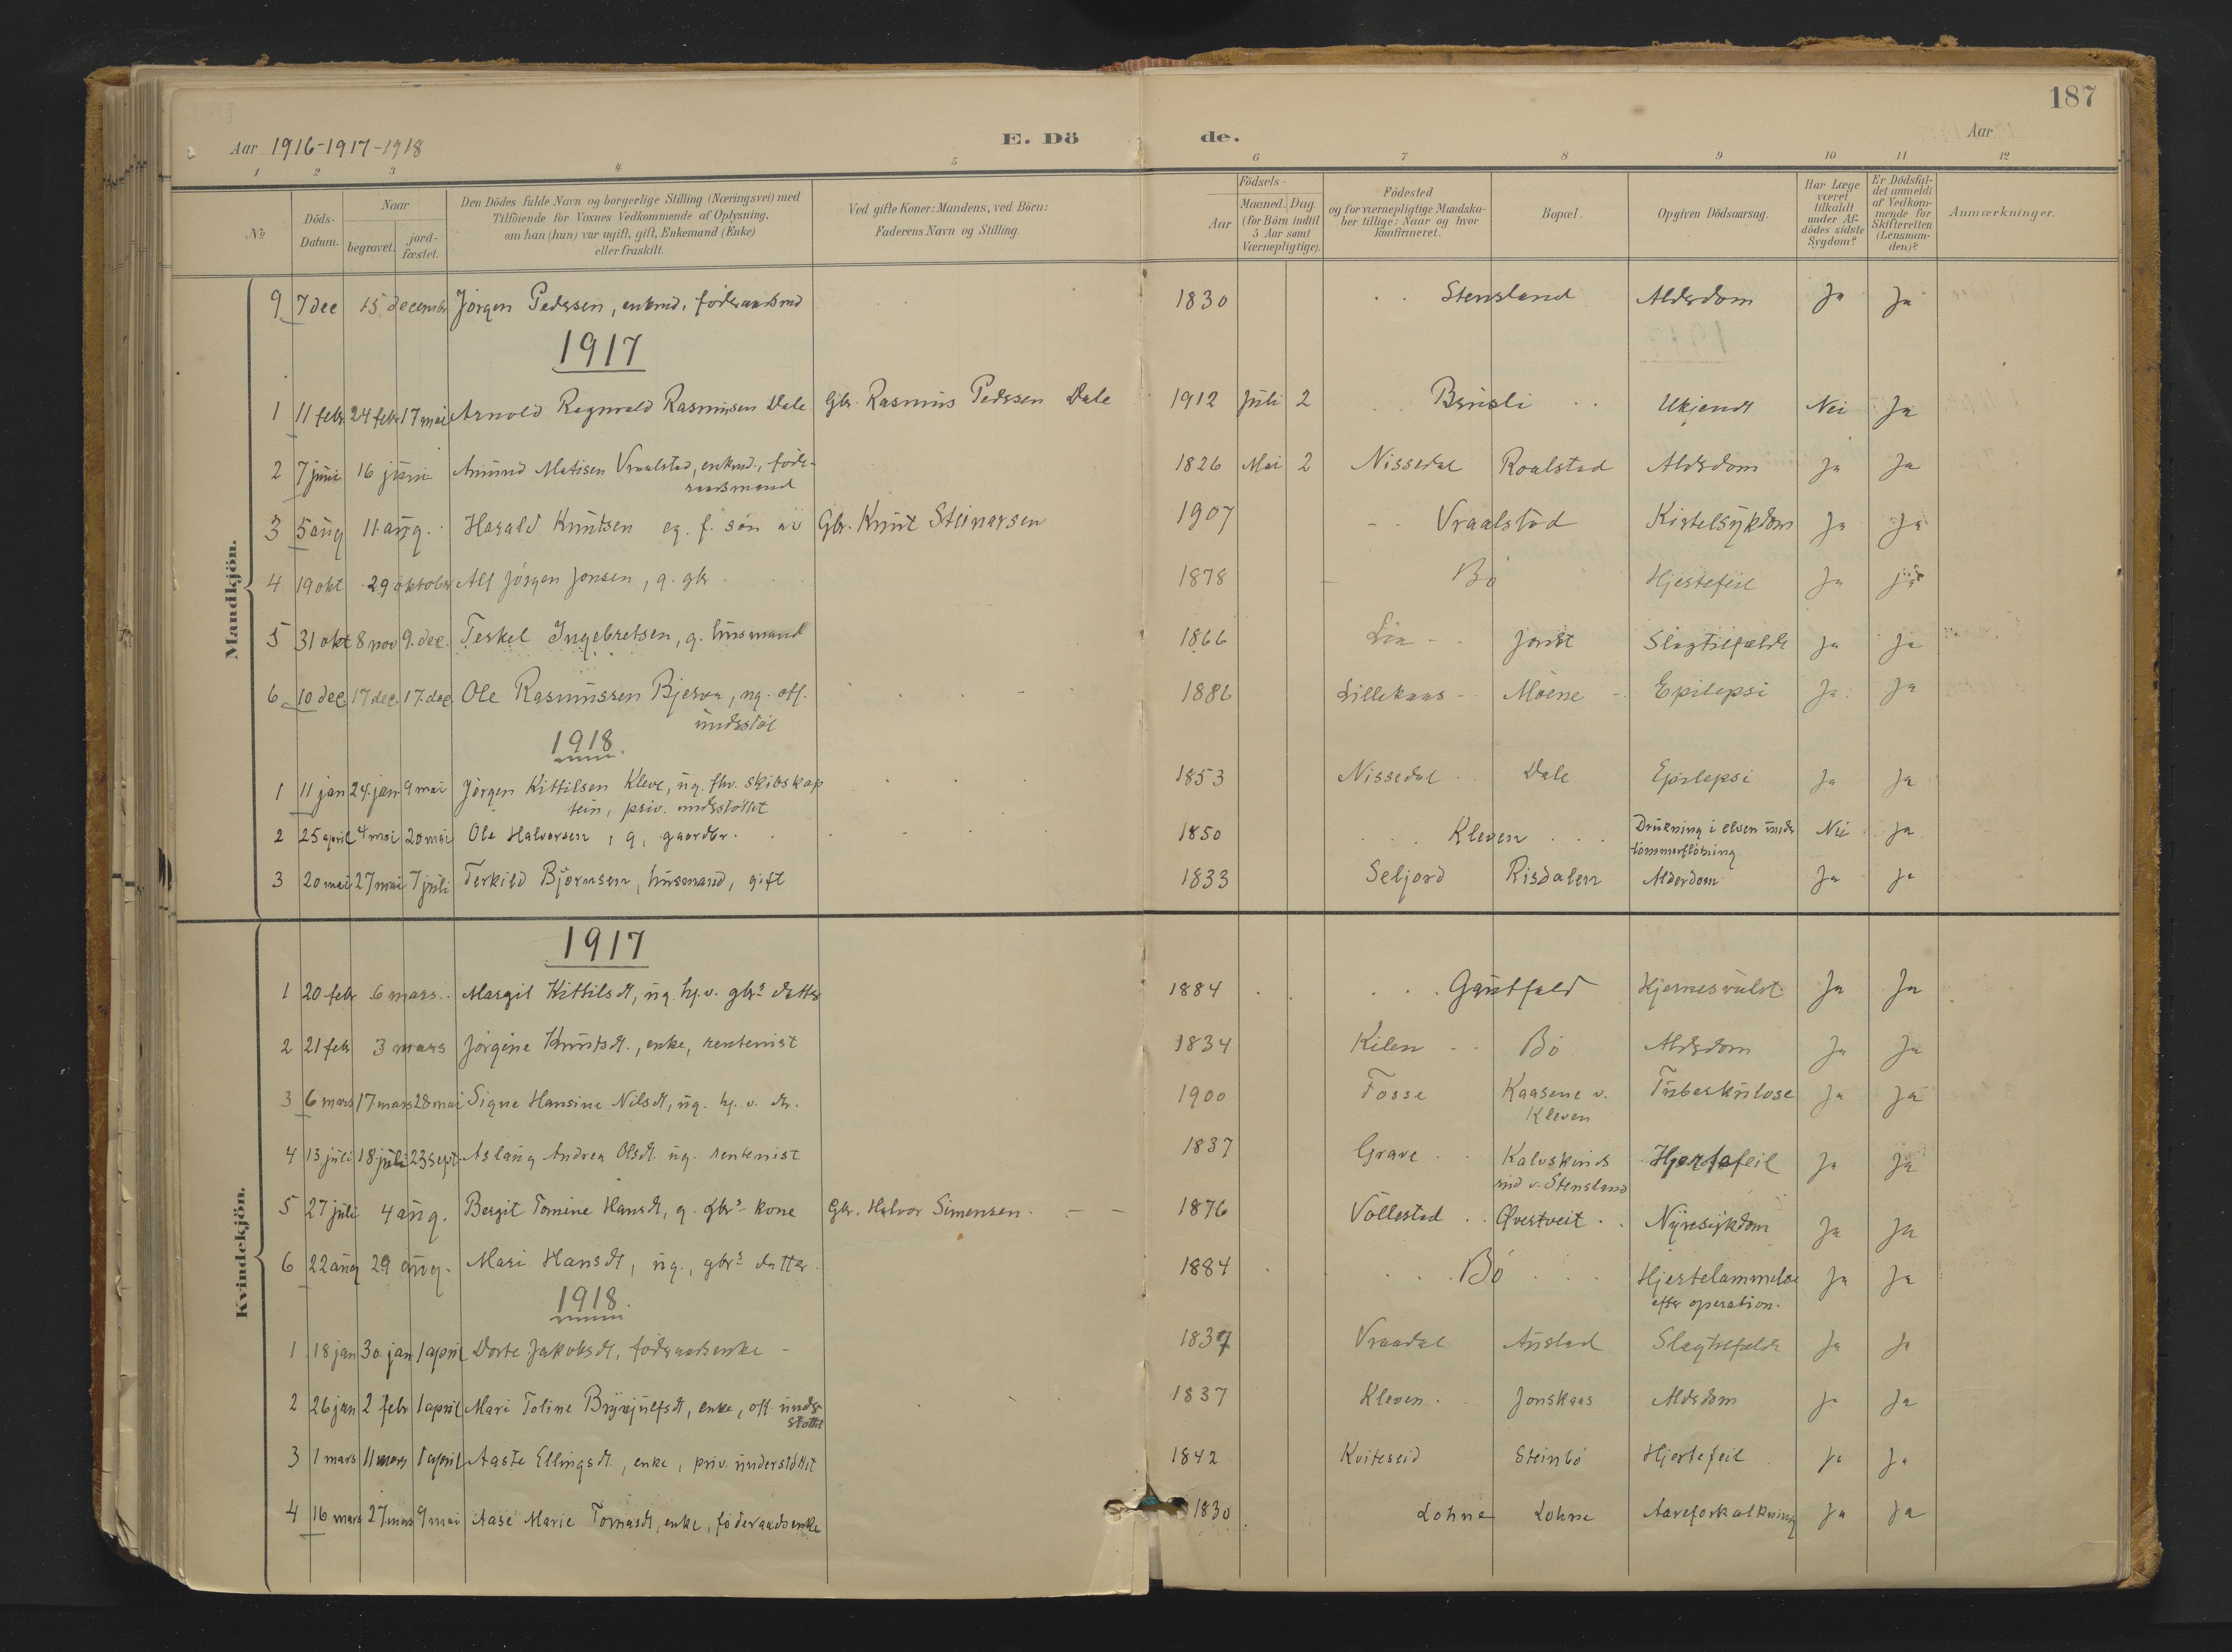 187
Aar 1916-1917-1918
E. Dö de.
Aar
1 2 3 4 5 6 7 8 9 10 11 12
No
Döds-Datum.
Naar
begravet.
jord-fæstet.
Den Dödes fulde Navn og borgerlige Stilling (Næringsvei) med
Tilföiende for Voxnes Vedkommende af Oplysning,
om han (hun) var ugift, gift, Enkemand (Enke)
eller fraskilt.
Ved gifte Koner: Mandens, ved Börn:
Faderens Navn og Stilling.
Födsels-
Aar
Maaned. Dag.
(for Börn indtil
5 Aar samt
Værnepligtige).
Födested
og for værnepligtige Mandska-
ber tillige: Naar og hvor
konfirmeret.
Bopæl.
Opgiven Dödsaarsag.
Har Læge
været
tilkaldt
under Af-
dödes sidste
Sygdom?
Er Dödsfal-
det anmeldt
af Vedkom-
mende for
Skifteretten
(Lensman-
den)?
Anmærkninger.
Mandkjön.
9 7 dec 15 december Jörgen Pedersen, enkmd, föderaadsmd 1830 Stensland Alderdom Ja Ja
1917
1 11 febr 24 febr 17 mai Arnold Ragnvald Rasmusen Dale Gbr. Rasmus Pedersen Dale 1912 Juli 2 Brusli Ukjendt Nei Ja
2 7 juni 16 juni Amund Matisen Vraalstad, enkmd., föde- 1826 Mai 2 Nissedal Roalstad Alderdom Ja Ja
raadsmand
3 5 aug 11. aug. Harald Knutsen eg. f. sön av Gbr. Knut Steinarsen 1907 Vraalstad Kirtelsykdom Ja Ja
4 19 okt 29 oktober Alf Jörgen Jonsen, g. gbr 1878 Bö Hjertefeil Ja ja
5 31 okt 8 nov 9. dec. Terkel Ingebretsen, g. husmand 1866 Lia Slagtilfælde Ja Ja
6 10 dec 17 dec. 17. dec. Ole Rasmussen Bjerva, ug. off. 1882 Lillekaas Moene Epilepsi Ja Ja
understöt
1918.
1 11 jan 24. jan 9 mai Jörgen Kittilsen Kleve, ug. fhv. skibskap 1853 Nissedal Dale Epilepsi Ja Ja
tein, priv. understöttet
2 25 april 4 mai 20 mai Ole Halvorsen, g, gaardbr. 1850 Kleven Drukning i elven under Nei Ja
tömmerflötning
3 20 mai 27 mai 7 juli Terkild Björnsen, husmand, gift 1833 Seljord Risdalen Alderdom Ja Ja
Kvindekjön.
1917
1 20 febr 6 mars Margit Kittilsdt, ug. hj.v. gbrs datter 1884 Gautfald Hjernesvulst Ja Ja
2 21 febr 3 mars Jörgine Knutsdt., enke, rentenist 1834 Kilen Bö Alderdom Ja Ja
3 6 mars 17 mars 28 mai Signe Hansine Nilsdt, ug. hj. v. dr. 1900 Fosse Kaasene v. Tuberkulose Ja Ja
Kleven
4 13 juli 18 juli 23 sept. Aslaug Andrea Olsdt. ug. rentenist 1837 Grave Kalvskinds Hjertefeil Ja Ja
rud v. Stensland
5 27 juli 4 aug. Bergit Tomine Hansdt, g. gbrs kone Gbr. Halvor Simensen. 1876 Völlestad Qvestveit Nyresykdom Ja Ja
6 22 aug 29 aug. Mari Hansdt, ug., gbrs datter 1884 Bö Hjertelammelse Ja Ja
efter operation.
1918.
1 18 jan 30. jan 1 april Dorte Jakobsdt, föderaadsenke 1837 Vraadal Austad Slagtilfælde Ja Ja
2 26 jan 2 febr 1 april Mari Toline Brynjulfsdt, enke, off. under 1837 Kleven Jonskaas Alderdom Ja Ja
stöttet
3 1 mars 11 mars 1 april Aaste Ellingsdt., enke, priv. understöttet 1842 Kviteseid Steinbö Hjertefeil Ja Ja
4 16 mars 27 mars 9 mai Aase Marie Tomasdt, enke, föderaadsenke 1830 Lohne Lohne Aareforkalkning Ja Ja